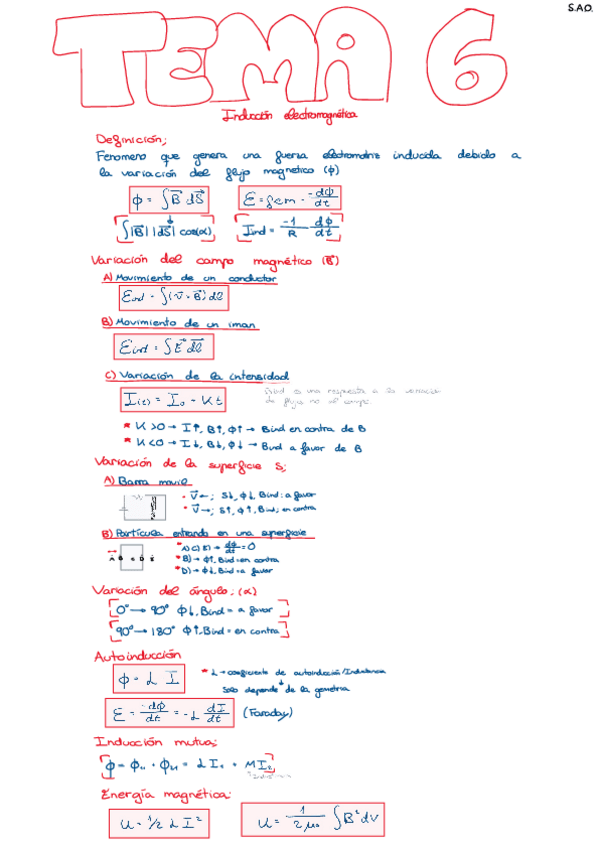 S.A.O.
TEMA 6
Inducción electromagnética
Definición;
Fenomeno que genera una fuerza electromotriz inducida debido a
la variación del flujo magnetico (ϕ)
ϕ = ∫B⃗ dS⃗
Ɛ = fem = -dϕ/dt
∫|B⃗| |dS⃗| cos(α)
Iind = -1/R dϕ/dt
Variación del campo magnético (B⃗)
A) Movimiento de un conductor
Ɛind = ∫(v⃗ × B⃗) dl
B) Movimiento de un iman
Ɛind = ∫E⃗ dl⃗
C) Variación de la intensidad
I(t) = I₀ - Kt
Bind es una respuesta a la variacion
de flujo no al campo.
* K>0 → I↑, B↑, ϕ↑ → Bind en contra de B
* K<0 → I↓, B↓, ϕ↓ → Bind a favor de B
Variación de la superficie S;
A) Barra movil
· V⃗←; S↓, ϕ↓, Bind: a favor
· V⃗→; S↑, ϕ↑, Bind; en contra
B) Partícula entrando en una superficie
A B C D E
* A) C) E) → dϕ/dt = 0
* B) → ϕ↑, Bind = en contra
* D) → ϕ↓, Bind = a favor
Variación del ángulo; (α)
0° → 90° ϕ↓, Bind = a favor
90° → 180° ϕ↑, Bind = en contra
Autoinducción
ϕ = L I
* L → coeficiente de autoinducción/Inductancia
solo depende de la geometria
Ɛ = -dϕ/dt = -L dI/dt (Faraday)
Inducción mutua;
ϕ = ϕ₁₁ + ϕ₂₁ = L I₁ + M I₂
Energía magnética:
U = 1/2 L I²
U = 1/2μ₀ ∫B² dV